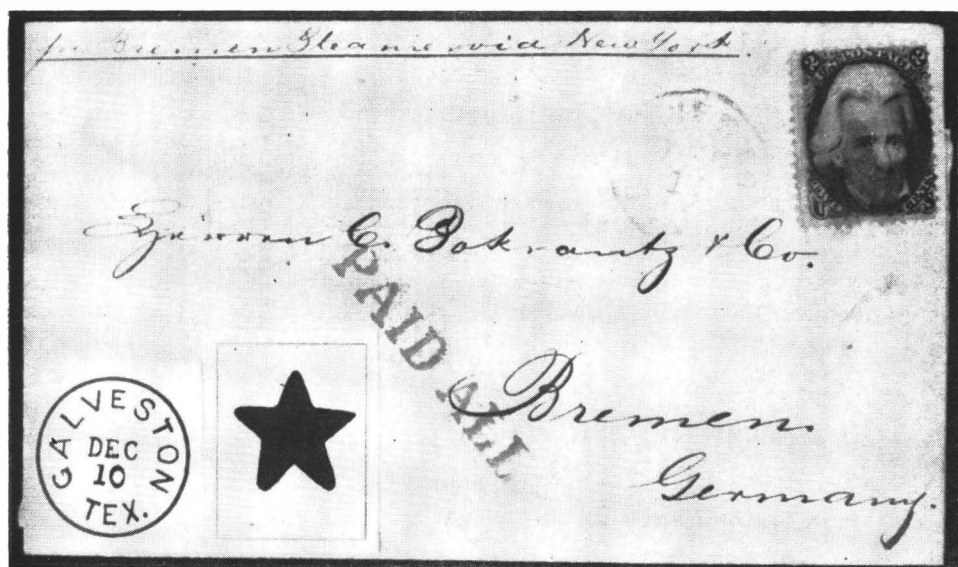 per Bremen Steamer via New York.
Herren C. Pokrantz & Co.
PAID ALL
Bremen.
Germany.
GALVESTON
DEC
10
TEX.